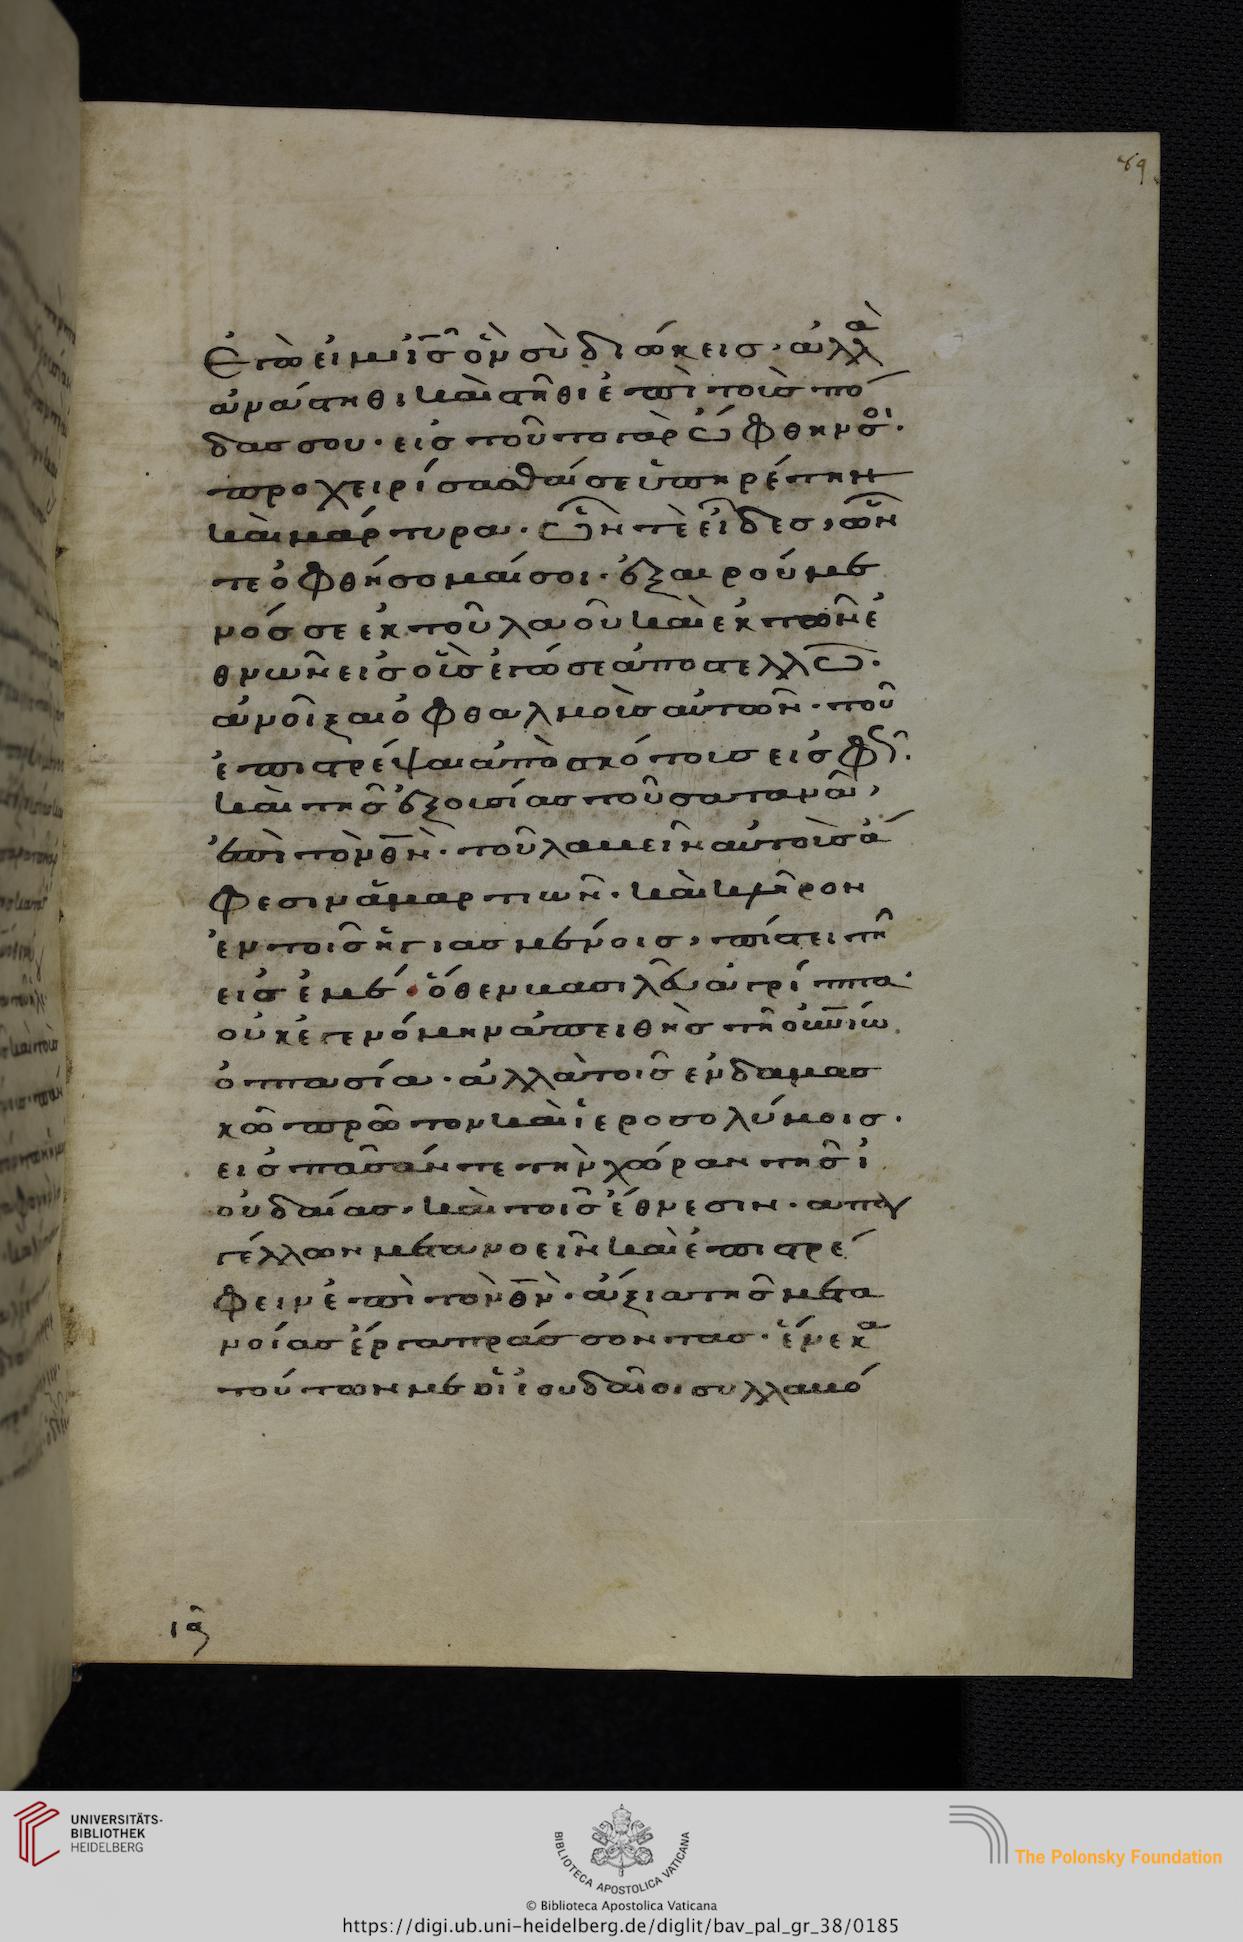 89
ἐγὼ εἰμι ι̅ς̅ ὃν σὺ διώκεις· ἀλλὰ
ἀνάστηθι καὶ στῆθι ἐπὶ τοὺς πό
δας σου· εἰς τοῦτο γὰρ ὤφθην σοι·
προχειρίσασθαί σε ὑπηρέτην
καὶ μάρτυρα· ὧν τὲ εἶδες, ὧν
τε ὀφθήσομαί σοι· ἐξαιρούμε
νός σε ἐκ τοῦ λαοῦ καὶ ἐκ τῶν ἐ
θνῶν εἰς οὓς ἐγώ σε ἀποστέλλω·
ἀνοῖξαι ὀφθαλμοὺς αὐτῶν· τοῦ
ἐπιστρέψαι ἀπὸ σκότους εἰς φῶς·
καὶ τῆς ἐξουσίας τοῦ σατανᾶ,
ἐπὶ τὸν θ̅ν̅· τοῦ λαβεῖν αὐτοὺς ἄ
φεσιν ἁμαρτιῶν· καὶ κλῆρον
ἐν τοῖς ἡγιασμένοις, πίστει τῆ
εἰς ἐμέ· ὅθεν βασιλεῦ ἀγρίππα·
οὐκ ἐγενόμην ἀπειθὴς τῆ οὐνίω
ὀπτασία· ἀλλὰ τοῖς ἐν δαμασ
κῶ πρῶτον καὶ ἱεροσολύμοις·
εἰς πᾶσάν τε τὴν χώραν τῆς ἰ
ουδαίας, καὶ τοῖς ἔθνεσιν· απαγ
γέλλων μετανοεῖν καὶ ἐπιστρέ
φειν ἐπὶ τὸν θ̅ν̅· ἄξια τῆς μετα
νοίας ἔργα πράσσοντας· ἕνεκα
τούτων με οἱ ἰουδαῖοι συλλαβό
ια
UNIVERSITÄTS-
BIBLIOTHEK
HEIDELBERG
BIBLIOTECA APOSTOLICA VATICANA
The Polonsky Foundation
© Biblioteca Apostolica Vaticana
https://digi.ub.uni-heidelberg.de/diglit/bav_pal_gr_38/0185